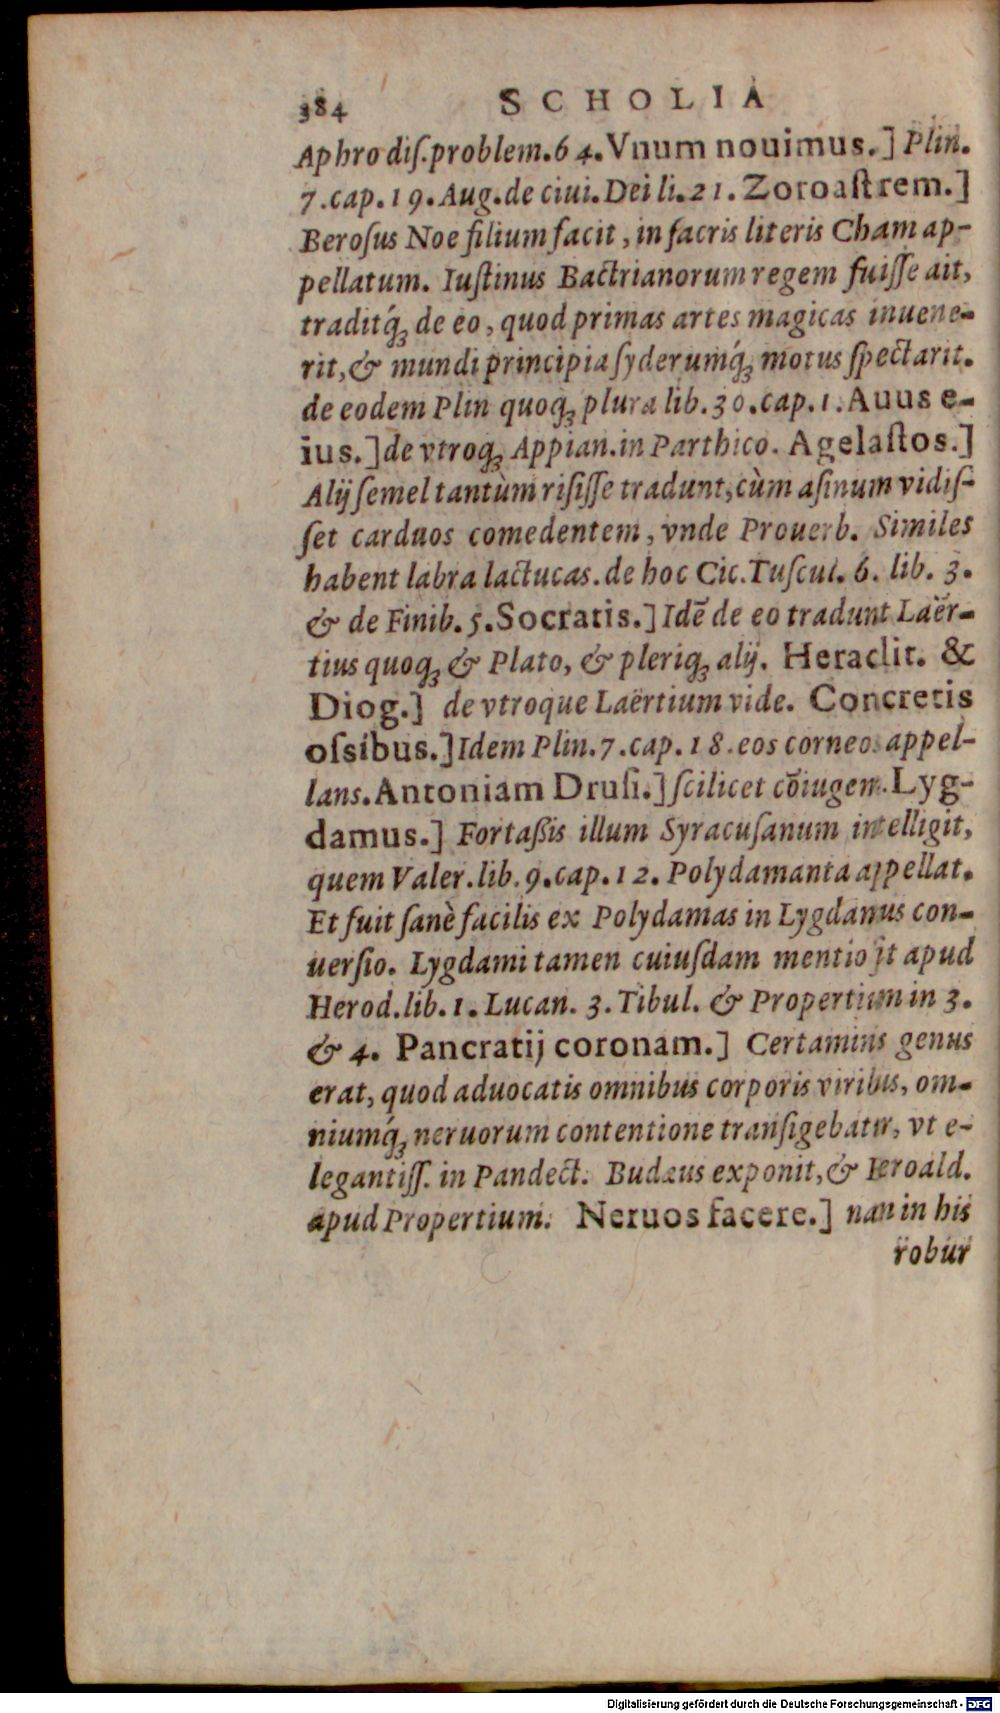 384 SCHOLIA
Aphrodiſ.problem.64. Vnum nouimus.] Plin.
7.cap.19. Aug.de ciui.Dei li.21. Zoroaſtrem.]
Beroſus Noe filium facit, in ſacris literis Cham ap-
pellatum. Iuſtinus Bactrianorum regem fuiſſe ait,
traditq́ꝫ de eo, quod primas artes magicas inuene-
rit, & mundi principia ſyderumq́ꝫ motus ſpectarit.
de eodem Plin quoqꝫ plura lib.30.cap.1. Auus e-
ius.] de vtroqꝫ Appian.in Parthico. Agelaſtos.]
Alij ſemel tantùm riſiſſe tradunt, cùm aſinum vidiſ-
ſet carduos comedentem, vnde Prouerb. Similes
habent labra lactucas. de hoc Cic.Tuſcul. 6. lib. 3.
& de Finib. 5. Socratis.] Idē de eo tradunt Laër-
tius quoqꝫ & Plato, & pleriqꝫ alij. Heraclit. &
Diog.] de vtroque Laërtium vide. Concretis
oſsibus.] Idem Plin.7.cap.18.eos corneos appel-
lans. Antoniam Druſi.] ſcilicet cōiugem. Lyg-
damus.] Fortaßis illum Syracuſanum intelligit,
quem Valer.lib.9.cap.12. Polydamanta appellat.
Et fuit ſanè facilis ex Polydamas in Lygdamus con-
uerſio. Lygdami tamen cuiuſdam mentio fit apud
Herod.lib.1. Lucan. 3. Tibul. & Propertium in 3.
& 4. Pancratij coronam.] Certaminis genus
erat, quod aduocatis omnibus corporis viribus, om-
niumq́ꝫ neruorum contentione tranſigebatur, vt e-
legantiſſ. in Pandect. Budæus exponit, & Beroald.
apud Propertium. Neruos facere.] nan in his
robur
Digitalisierung gefördert durch die Deutsche Forschungsgemeinschaft - DFG